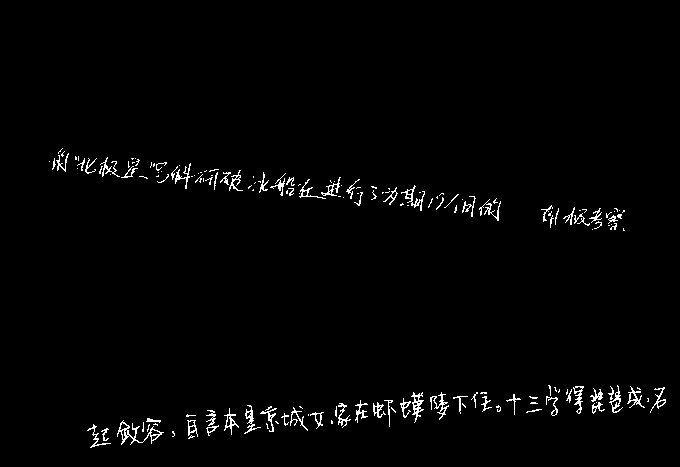 的"北极星"号科研破冰船在进行了为期19个月的 南极考察
起敛容,自言本是京城女,家在虾蟆陵下住。十三学得琵琶成,名